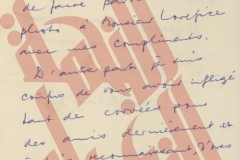 de faire pa
photo à Monsieur Lovefice
avec mes compliments.
D'autre part je suis
confus de vous avoir infligé
tant de corvées pour
des amis dernièrement et
reconnaissant d'vous